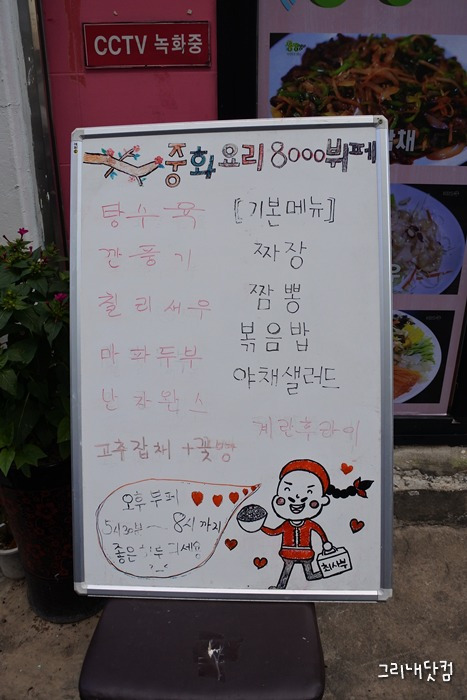 CCTV 녹화중
중화요리 8000뷔페
탕수육
깐풍기
칠리새우
마파두부
난자완스
고추잡채+꽃빵
[기본메뉴]
짜장
짬뽕
볶음밥
야채샐러드
계란후라이
오후부페
5시30분~8시까지
좋은하루되세용
최사부
잡채
그리내닷컴